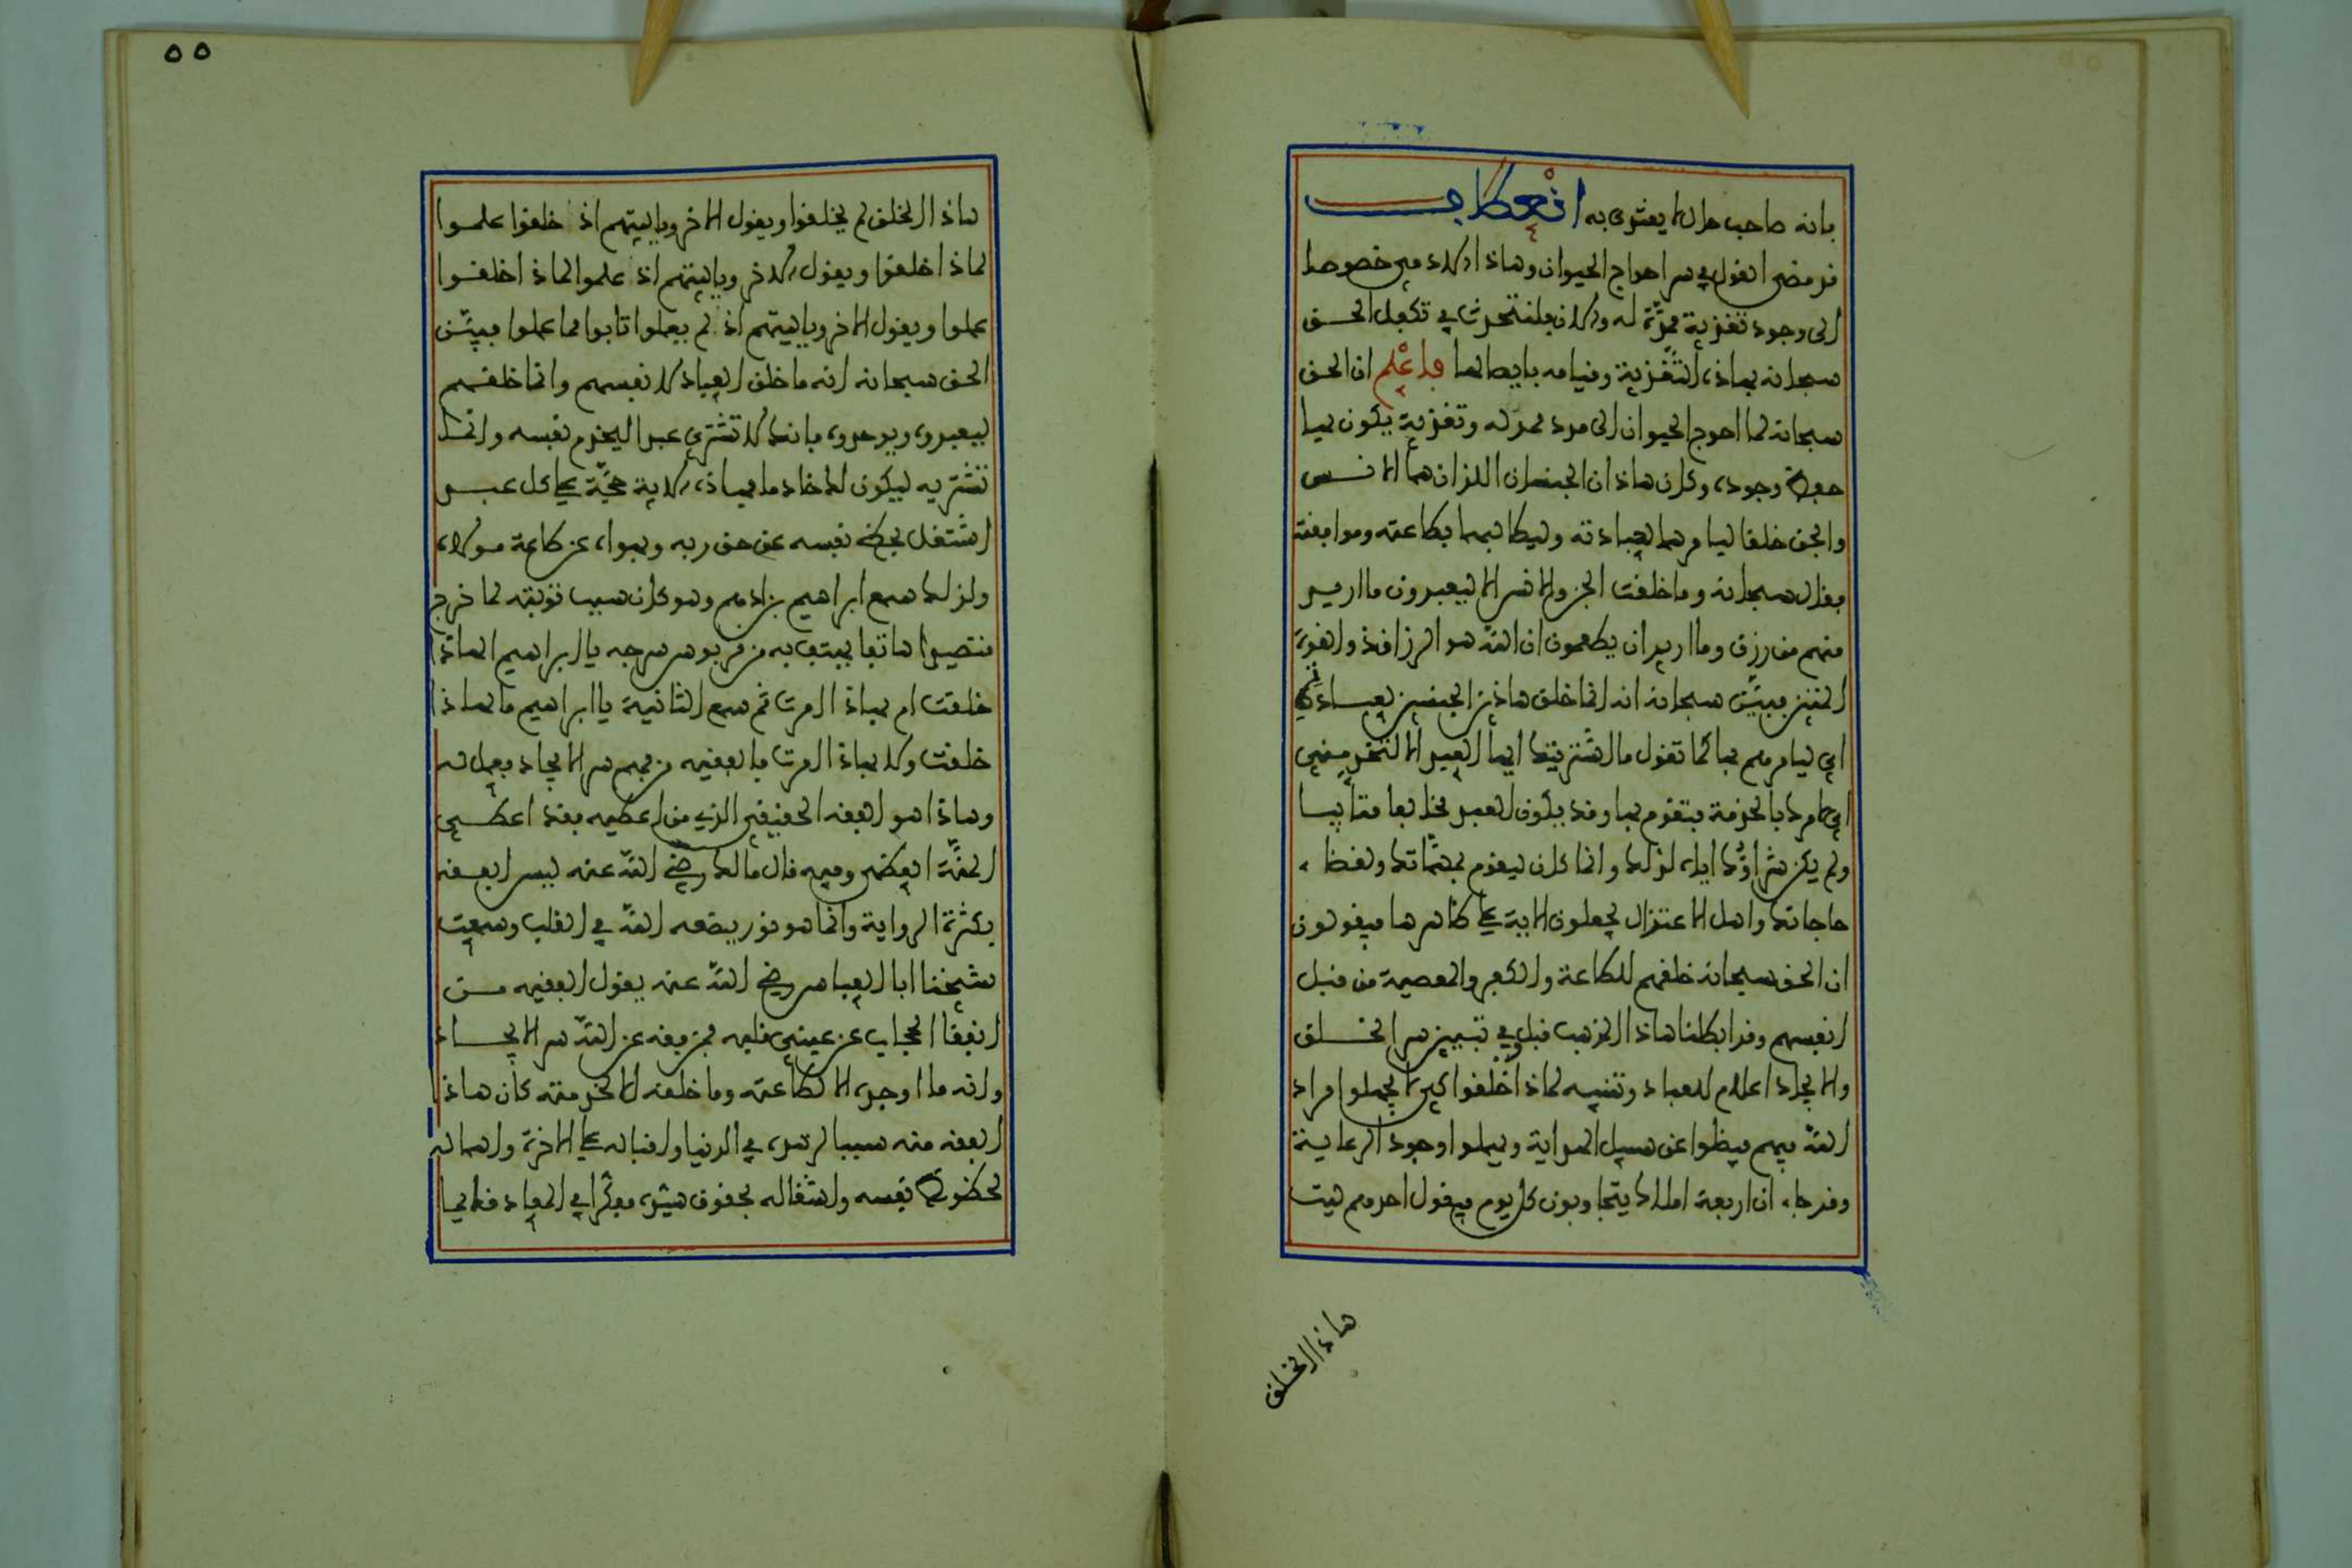 بانه صاحب حال لا يقتدى به انعطاف
قد مضى القول في سر احواج الحيوان وهاذا الادمي خصوصا
الى وجود تغذية ممدّة له والان فلنتحدث في تكفل الحق
سبحانه بهاذه التغذية وقيامه بايصالها فاعلم ان الحق
سبحانه لما احوج الحيوان الى مدد ممد له وتغذية يكون بها
حفظ وجوده وكان هاذان الجنسان اللذان هما الانس
والجن خلقا ليامرهما بعبادته وليطالبهما بطاعته وموافقته
فقال سبحانه وما خلقت الجن والانس الا ليعبدون ما اريد
منهم من رزق وما اريد ان يطعمون ان الله هو الرزاق ذو القوة
المتين فبيّن سبحانه انه انما خلق هاذين الجنسين لعبادته
اي ليامرهم بها كما تقول ما اشتريتك ايها العبد الا لتخدمني
اي لامرك بالخدمة فتقوم بها وقد يكون العبد مخالفا متأبيا
ولم يكن شراؤك اياه لذلك وانما كان ليقوم بمهماتك ولقضاء
حاجاتك واهل الاعتزال يجعلون الاية على ظاهرها فيقولون
ان الحق سبحانه خلقهم للطاعة والكفر والمعصية من قبل
انفسهم وقد ابطلنا هاذا المذهب قبل وفي تبيين سر الخلق
والايجاد اعلام للعباد وتنبيه لماذا خلقوا كي لا يجهلوا مراد
الله فيهم فيضلوا عن سبيل الهداية ويهملوا وجود الرعاية
وقد جاء ان اربعة املاك يتجاوبون كل يوم فيقول احدهم ليت
هاذا الخلق
٥٥
هاذا الخلق لم يخلقوا ويقول الاخر وياليتهم اذ خلقوا علموا
لماذا خلقوا ويقول الاخر وياليتهم اذ علموا لماذا خلقوا
عملوا ويقول الاخر وياليتهم اذ لم يعملوا تابوا مما عملوا فبيّن
الحق سبحانه انه ما خلق العباد لانفسهم وانما خلقهم
ليعبدوه ويوحدوه فانك لا تشتري عبدا ليخدم نفسه وانما
تشتريه ليكون لك خادما فهاذه الاية حجّة على كل عبد
اشتغل بحظ نفسه عن حق ربه وبهواه عن طاعة مولاه
ولذلك سمع ابراهيم بن ادهم وهو كان سبب توبته لما خرج
متصيدا هاتفا يهتف به من قربوس سرجه يا ابراهيم الهاذا
خلقت ام بهاذا امرت ثم سمع الثانية يا ابراهيم ما لهاذا
خلقت ولا بهاذا امرت فالفقيه من فهم سر الايجاد فعمل له
وهاذا هو الفقه الحقيقي الذي من اعطيه فقد اعطي
المنّة العظمى وفيه قال مالك رضي الله عنه ليس الفقه
بكثرة الرواية وانما هو نور يضعه الله في القلب وسمعت
شيخنا ابا العباس رضي الله عنه يقول الفقيه من
انفقا الحجاب عن عيني قلبه فمن فقه عن الله سر الايجاد
وانه ما اوجده الا لطاعته وما خلقه الا لخدمته كان هاذا
الفقه منه سببا لزهده في الدنيا واقباله على الاخرة واهماله
لحظوظ نفسه واشتغاله بحقوق سيده مفكرا في المعاد قائما